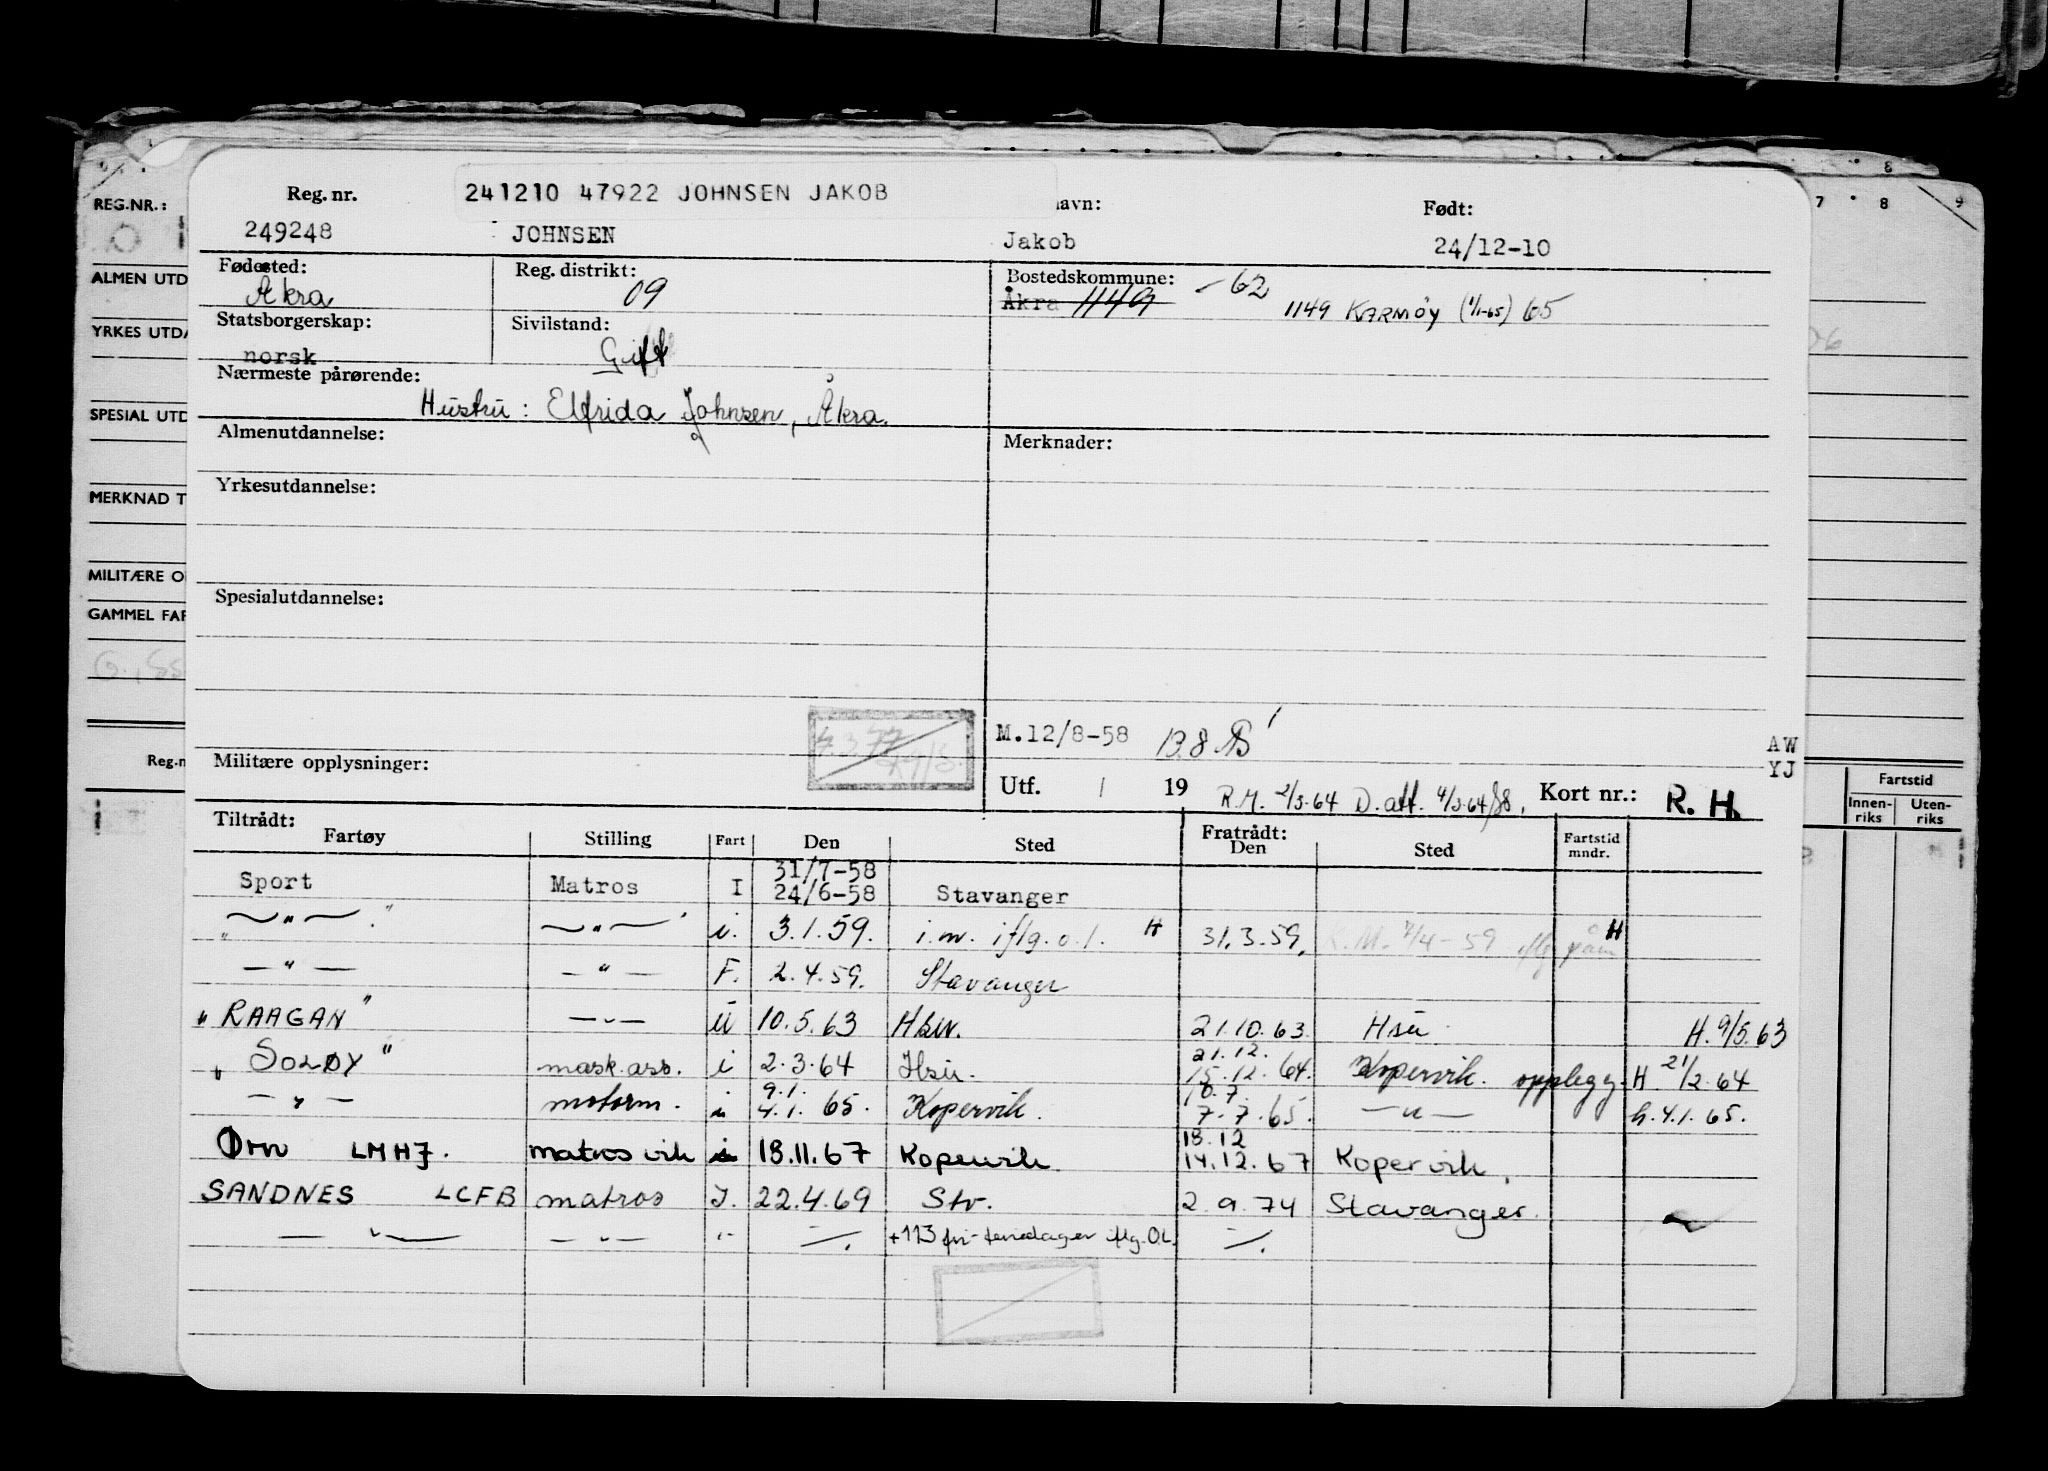 REG.NR.:
ALMEN UTD
YRKES UTDA
SPESIAL UTD
MERKNAD T
MILITÆRE O
GAMMEL FAR
Reg.n
7 8 9
8
Fartstid
Innen-
riks
Uten-
riks
241210 47922 JOHNSEN JAKOB
Reg. nr. navn: Født:
249248 JOHNSEN Jakob 24/12-10
Fødested: Reg. distrikt: Bostedskommune:
Åkra 09 Åkra 1149 -62 1149 KARMØY (1/1-65) 65
Statsborgerskap: Sivilstand:
norsk Gift
Nærmeste pårørende:
Hustru: Elfrida Johnsen, Åkra.
Almenutdannelse: Merknader:
Yrkesutdannelse:
Spesialutdannelse:
M.12/8-58
AW
YJ
Militære opplysninger:
Utf. / 19 R.M. 2/3-64 D.att. 4/3-64 Kort nr.: R.H.
Tiltrådt: Fratrådt:
Fartøy Stilling Fart Den Sted Den Sted Fartstid
mndr.
31/7-58
Sport Matros I 24/6-58 Stavanger
— " — — " — i. 3.1.59. i.m. iflg. o.l. H 31.3.59. R.M. 7/4-59 H
— " — — " — F. 2.4.59. Stavanger
"RAAGAN" — " — ü 10.5.63 Hsu. 21.10.63 Hsu. H. 9/5.63
21.12.
"SOLØY" mask.ass. i 2.3.64 Hsu. 15.12.64. Kopervik. opplegg. H 21/2.64
9.1. 10.7.
— " — motorm. i 4.1.65. Kopervik. 7.7.65. — " — h. 4.1.65.
18.12
Ørn LMHJ. matros vik i 18.11.67 Kopervik. 14.12.67 Kopervik.
SANDNES LCFB matros I. 22.4.69 Stv. 2.9.74 Stavanger.
— " — — " — " +113 fri-feriedager iflg. O.L.